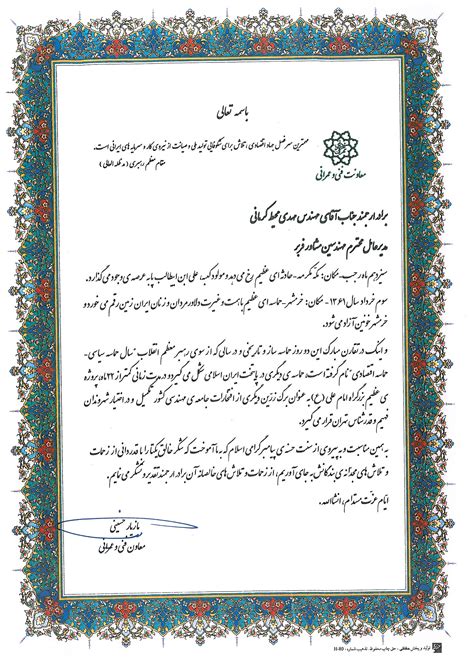 باسمه تعالی
مهمترین سرفصل جهاد اقتصادی، تلاش برای شکوفائی تولید ملی و صیانت از نیروی کار و سرمایه های ایرانی است.
مقام معظم رهبری (مدظله العالی)
معاونت فنی و عمرانی
برادر ارجمند جناب آقای مهندس مهدی محیط کرمانی
مدیرعامل محترم مهندسین مشاور فربر
سیزدهم ماه رجب - مکان: مکه مکرمه - حادثه ای عظیم رخ می دهد و مولود کعبه، علی ابن ابیطالب پا به عرصه ی وجود می گذارد.
سوم خرداد سال ۱۳۶۱ - مکان: خرمشهر - حماسه ای عظیم با همت و غیرت دلاورمردان و زنان ایران زمین رقم می خورد و
خرمشهر خونین آزاد می شود.
و اینک در تقارن مبارک این دو روز حماسه ساز و تاریخی و در سالی که از سوی رهبر معظم انقلاب "سال حماسه سیاسی-
حماسه اقتصادی" نام گرفته است، حماسه ی دیگری در پایتخت ایران اسلامی شکل می گیرد و در مدت زمانی کمتر از ۲۲ ماه پروژه ی
عظیم بزرگراه امام علی (ع) به عنوان برگ زرین دیگری از افتخارات جامعه ی مهندسی کشور تکمیل و در اختیار شهروندان
فهیم و قدرشناس تهران قرار می گیرد.
به همین مناسبت و به پیروی از سنت حسنه ی پیامبر گرامی اسلام که به ما آموخت که شکر خالق یکتا را با قدردانی از زحمات
و تلاش های مجدانه ی بندگانش به جای آوریم، از زحمات و تلاش های خالصانه آن برادر ارجمند تقدیر و تشکر می نمایم.
ایام عزت مستدام، انشاالله.
مازیار حسینی
معاون فنی و عمرانی
تولید و پخش حقانی - حق چاپ محفوظ، تذهیب شماره: H-80